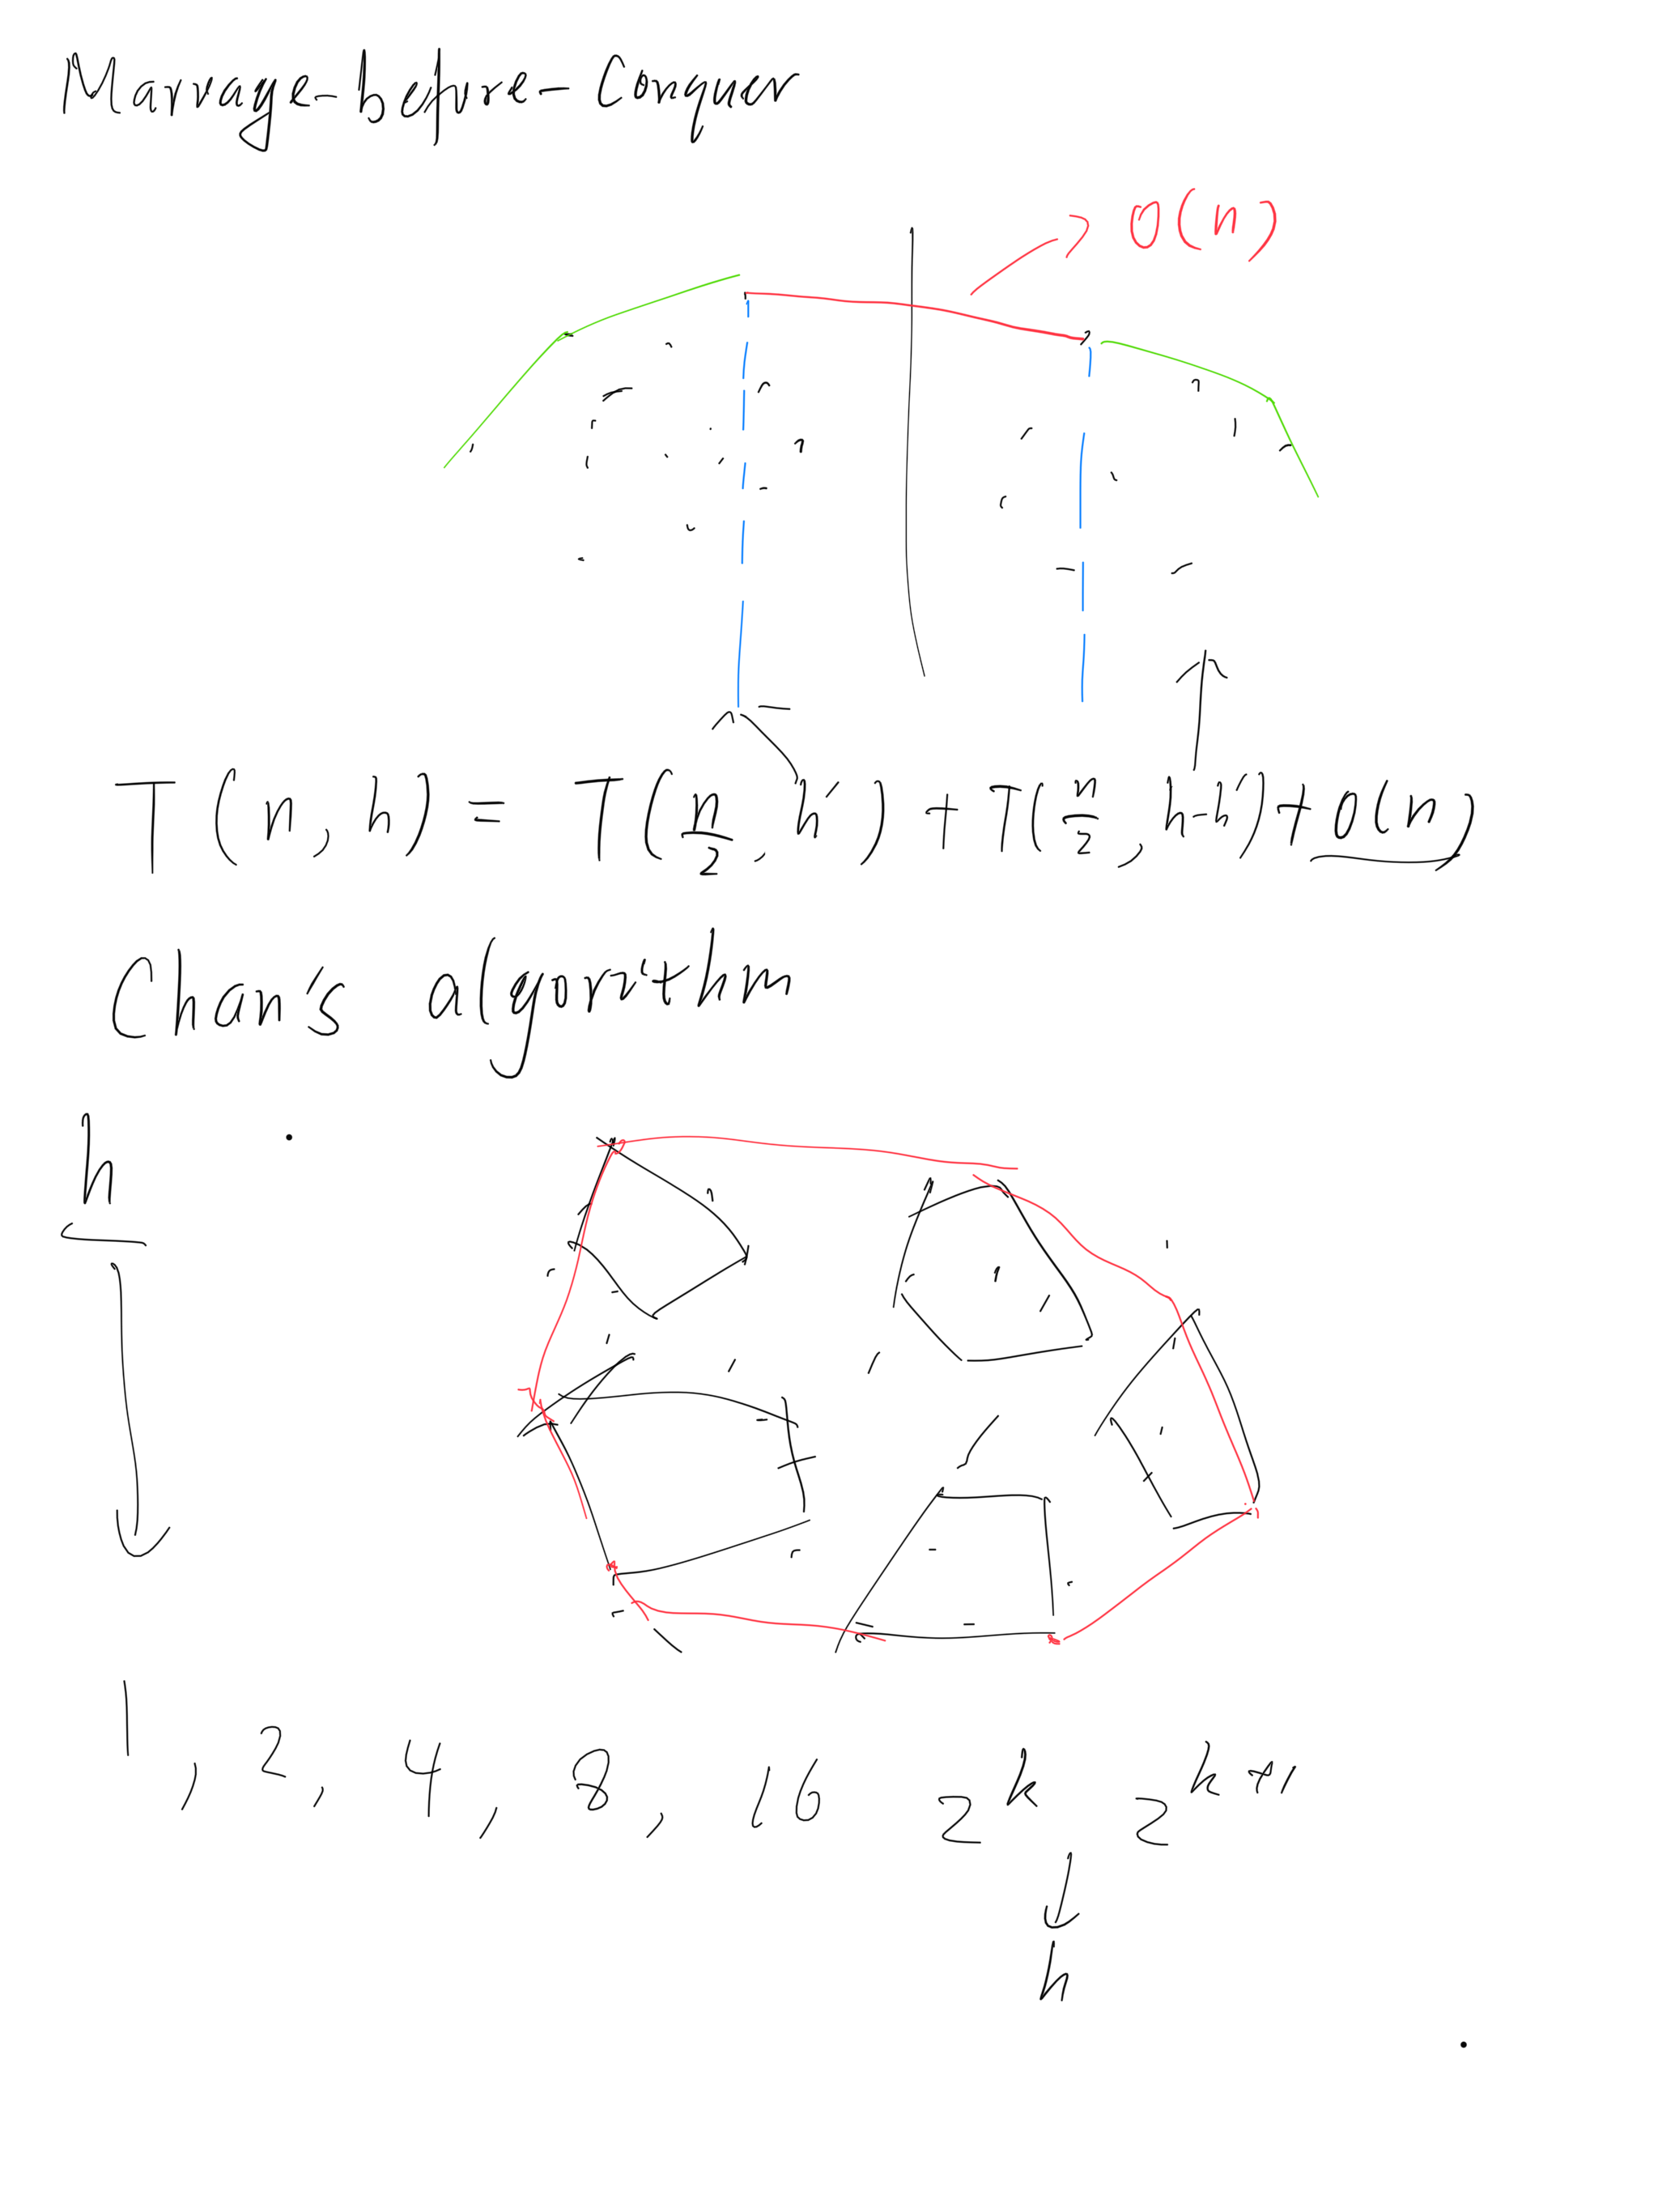 Marrage-before-Conquer
O(n)
T(n, h) = T(n/2, h') + T(n/2, h-h') + O(n)
Chan's algorithm
h
1, 2, 4, 8, 16 2^k 2^k+1
h